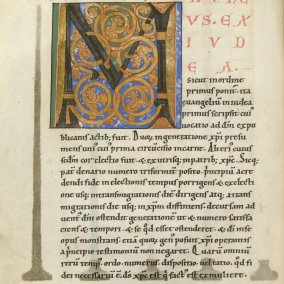 M
ATHE
VS. EX
IVDE
A.
sicut in ordine
primus ponit. ita
euangeliū in iudea
primus scripsit cui
uocatio ad dm̄ ex pu
blicanis actib; fuit. Duoꝝ in generatione xp̄i presu
mens uni cui prima circūcisio in carne. Alteri cuius
sedm̄ cor electio fuit. & ex utrisq; in patrib; xp̄c. Sicq;
pari denario numero triformit posito. principiū a cre
dendi fide in electionis tempus porrigens. & ex electio
ne usq; in transmigrationis diem dirigens atq; a trans
migrationis die usq; in xp̄m diffiniens. decursam ad
uentū dn̄i ostendit generationē. ut & numero satisfa
ciens & tempori. & se qd̄ esset ostenderet. & dī in se
opus monstrans. etiā quoꝝ gen posuit. xp̄i operantis
a principio testimoniū non negaret. Quarū omniū
rerū temp. ordo. numerus. dispositio. uel ratio. qd̄ fi
dei necessariū ē. ds̄ xp̄c est. qui fact est ex muliere.